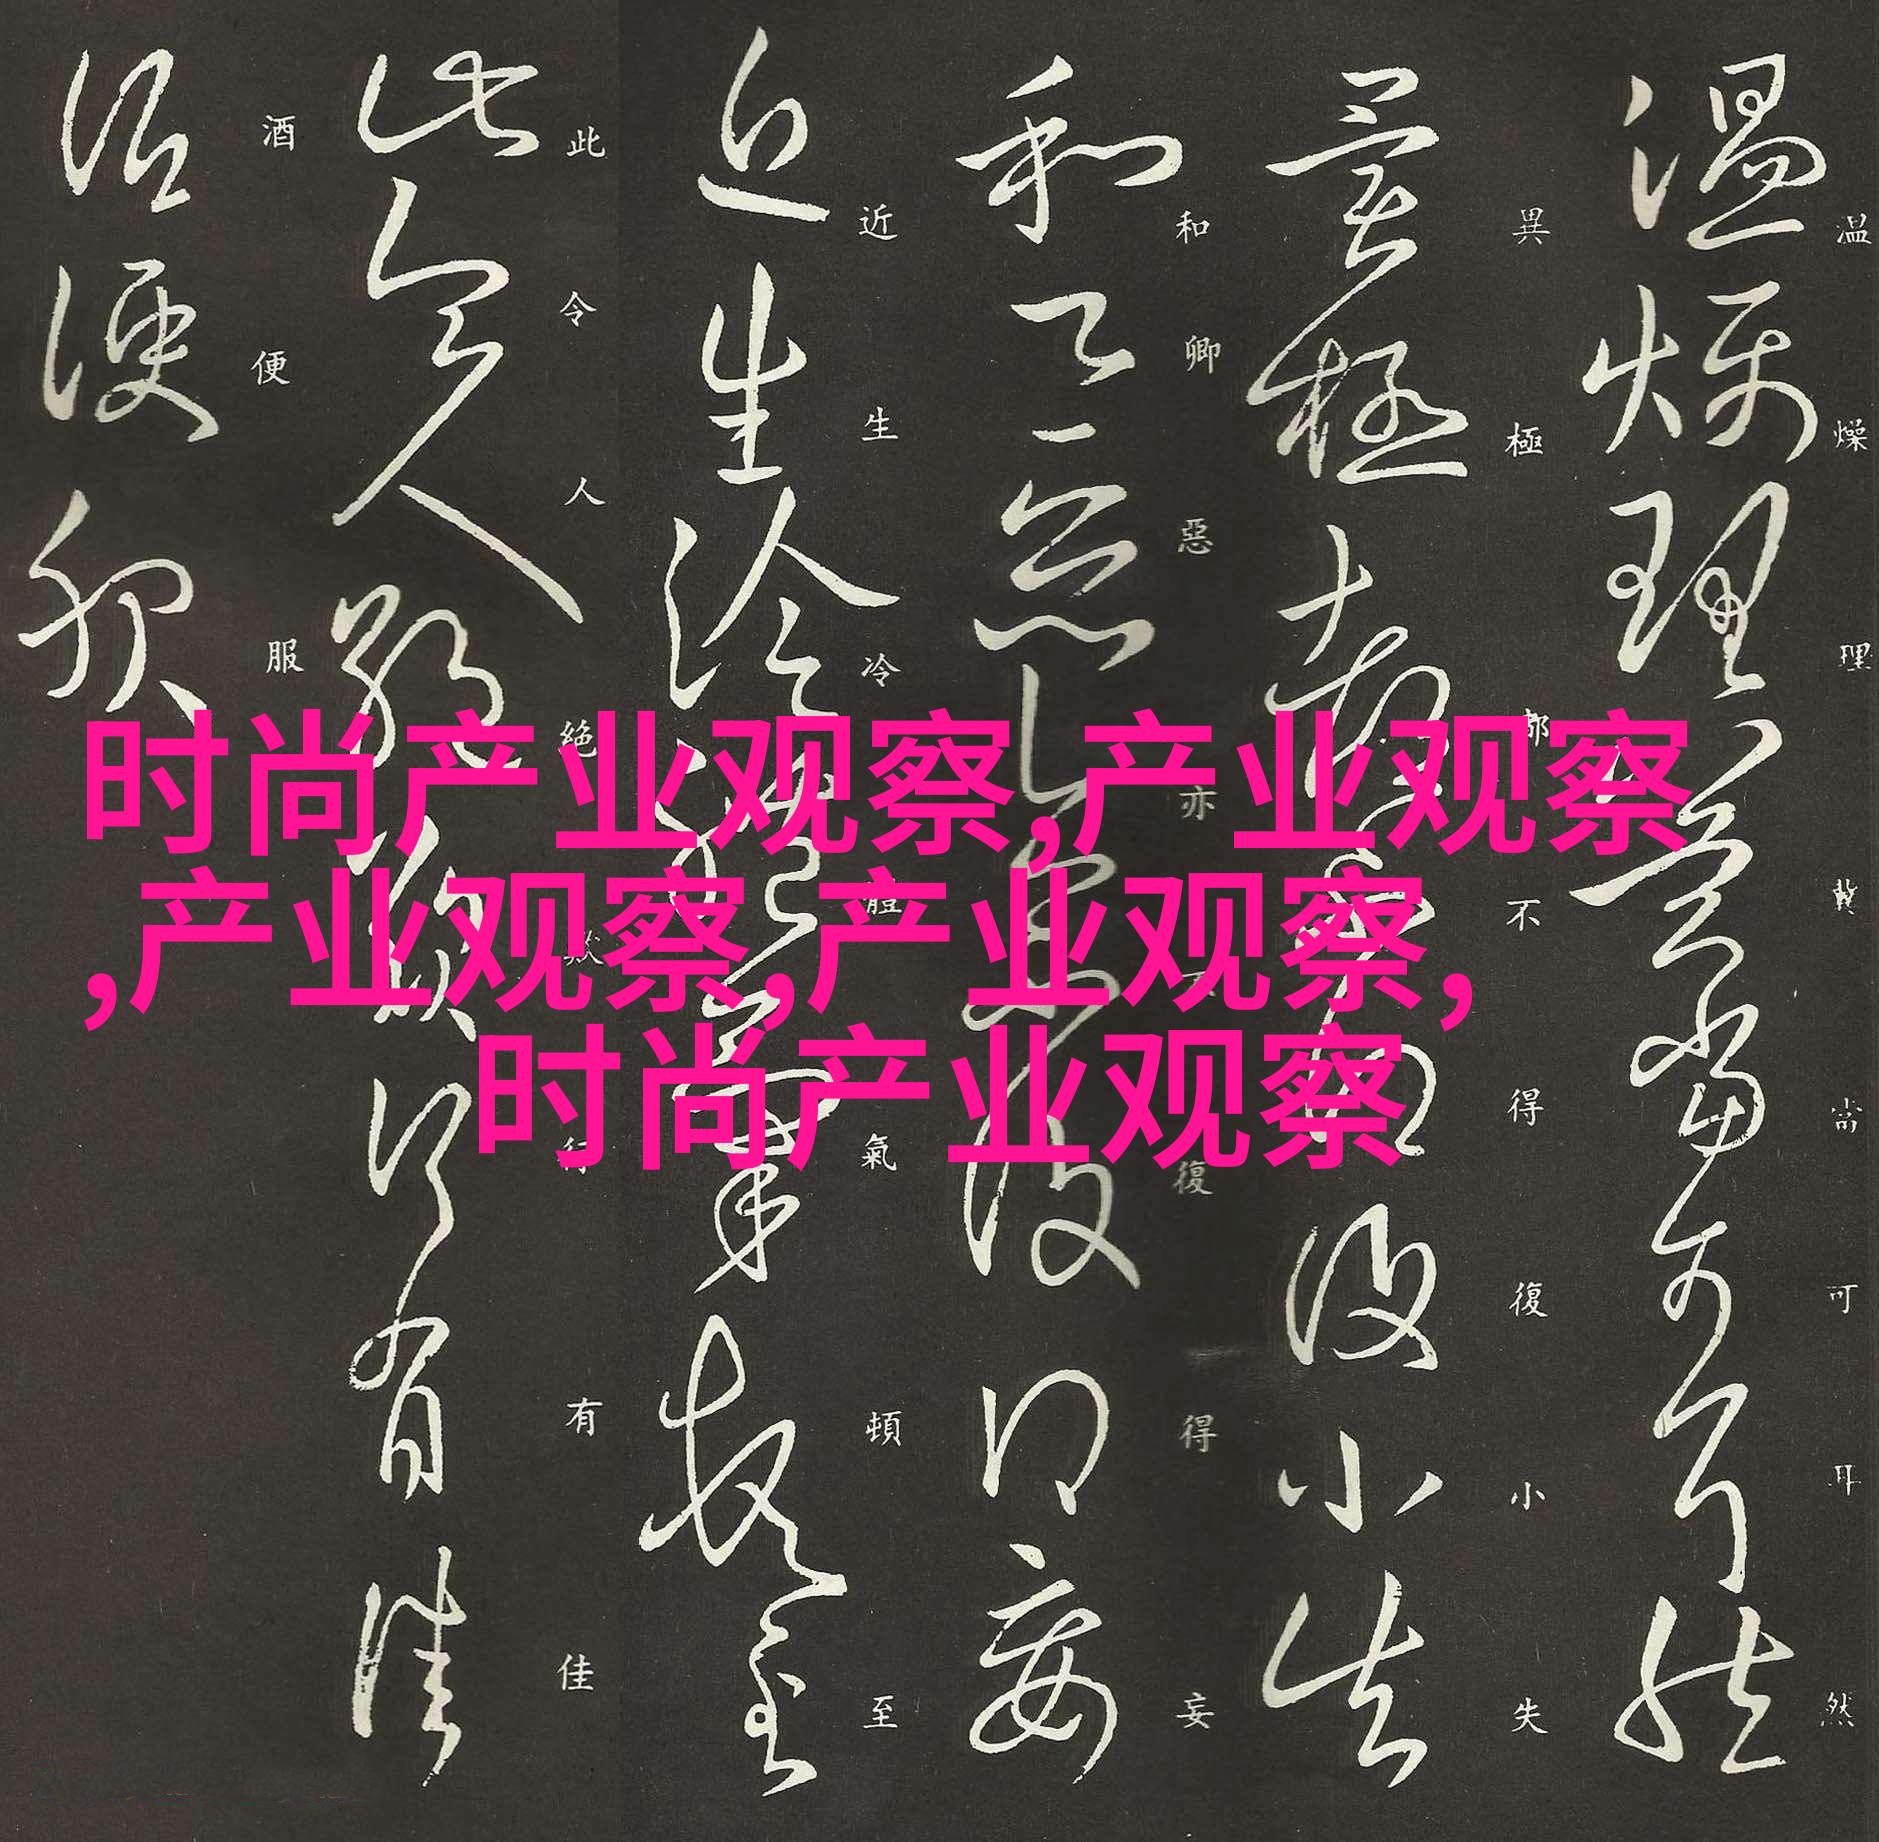 温燥理冀當可耳然
異極都不得復小失
和卿惡亦不復得妄
近生冷體氣頓至
此令人絕歎行有佳
酒便服
时尚产业观察,产业观察
,产业观察,产业观察,
时尚产业观察